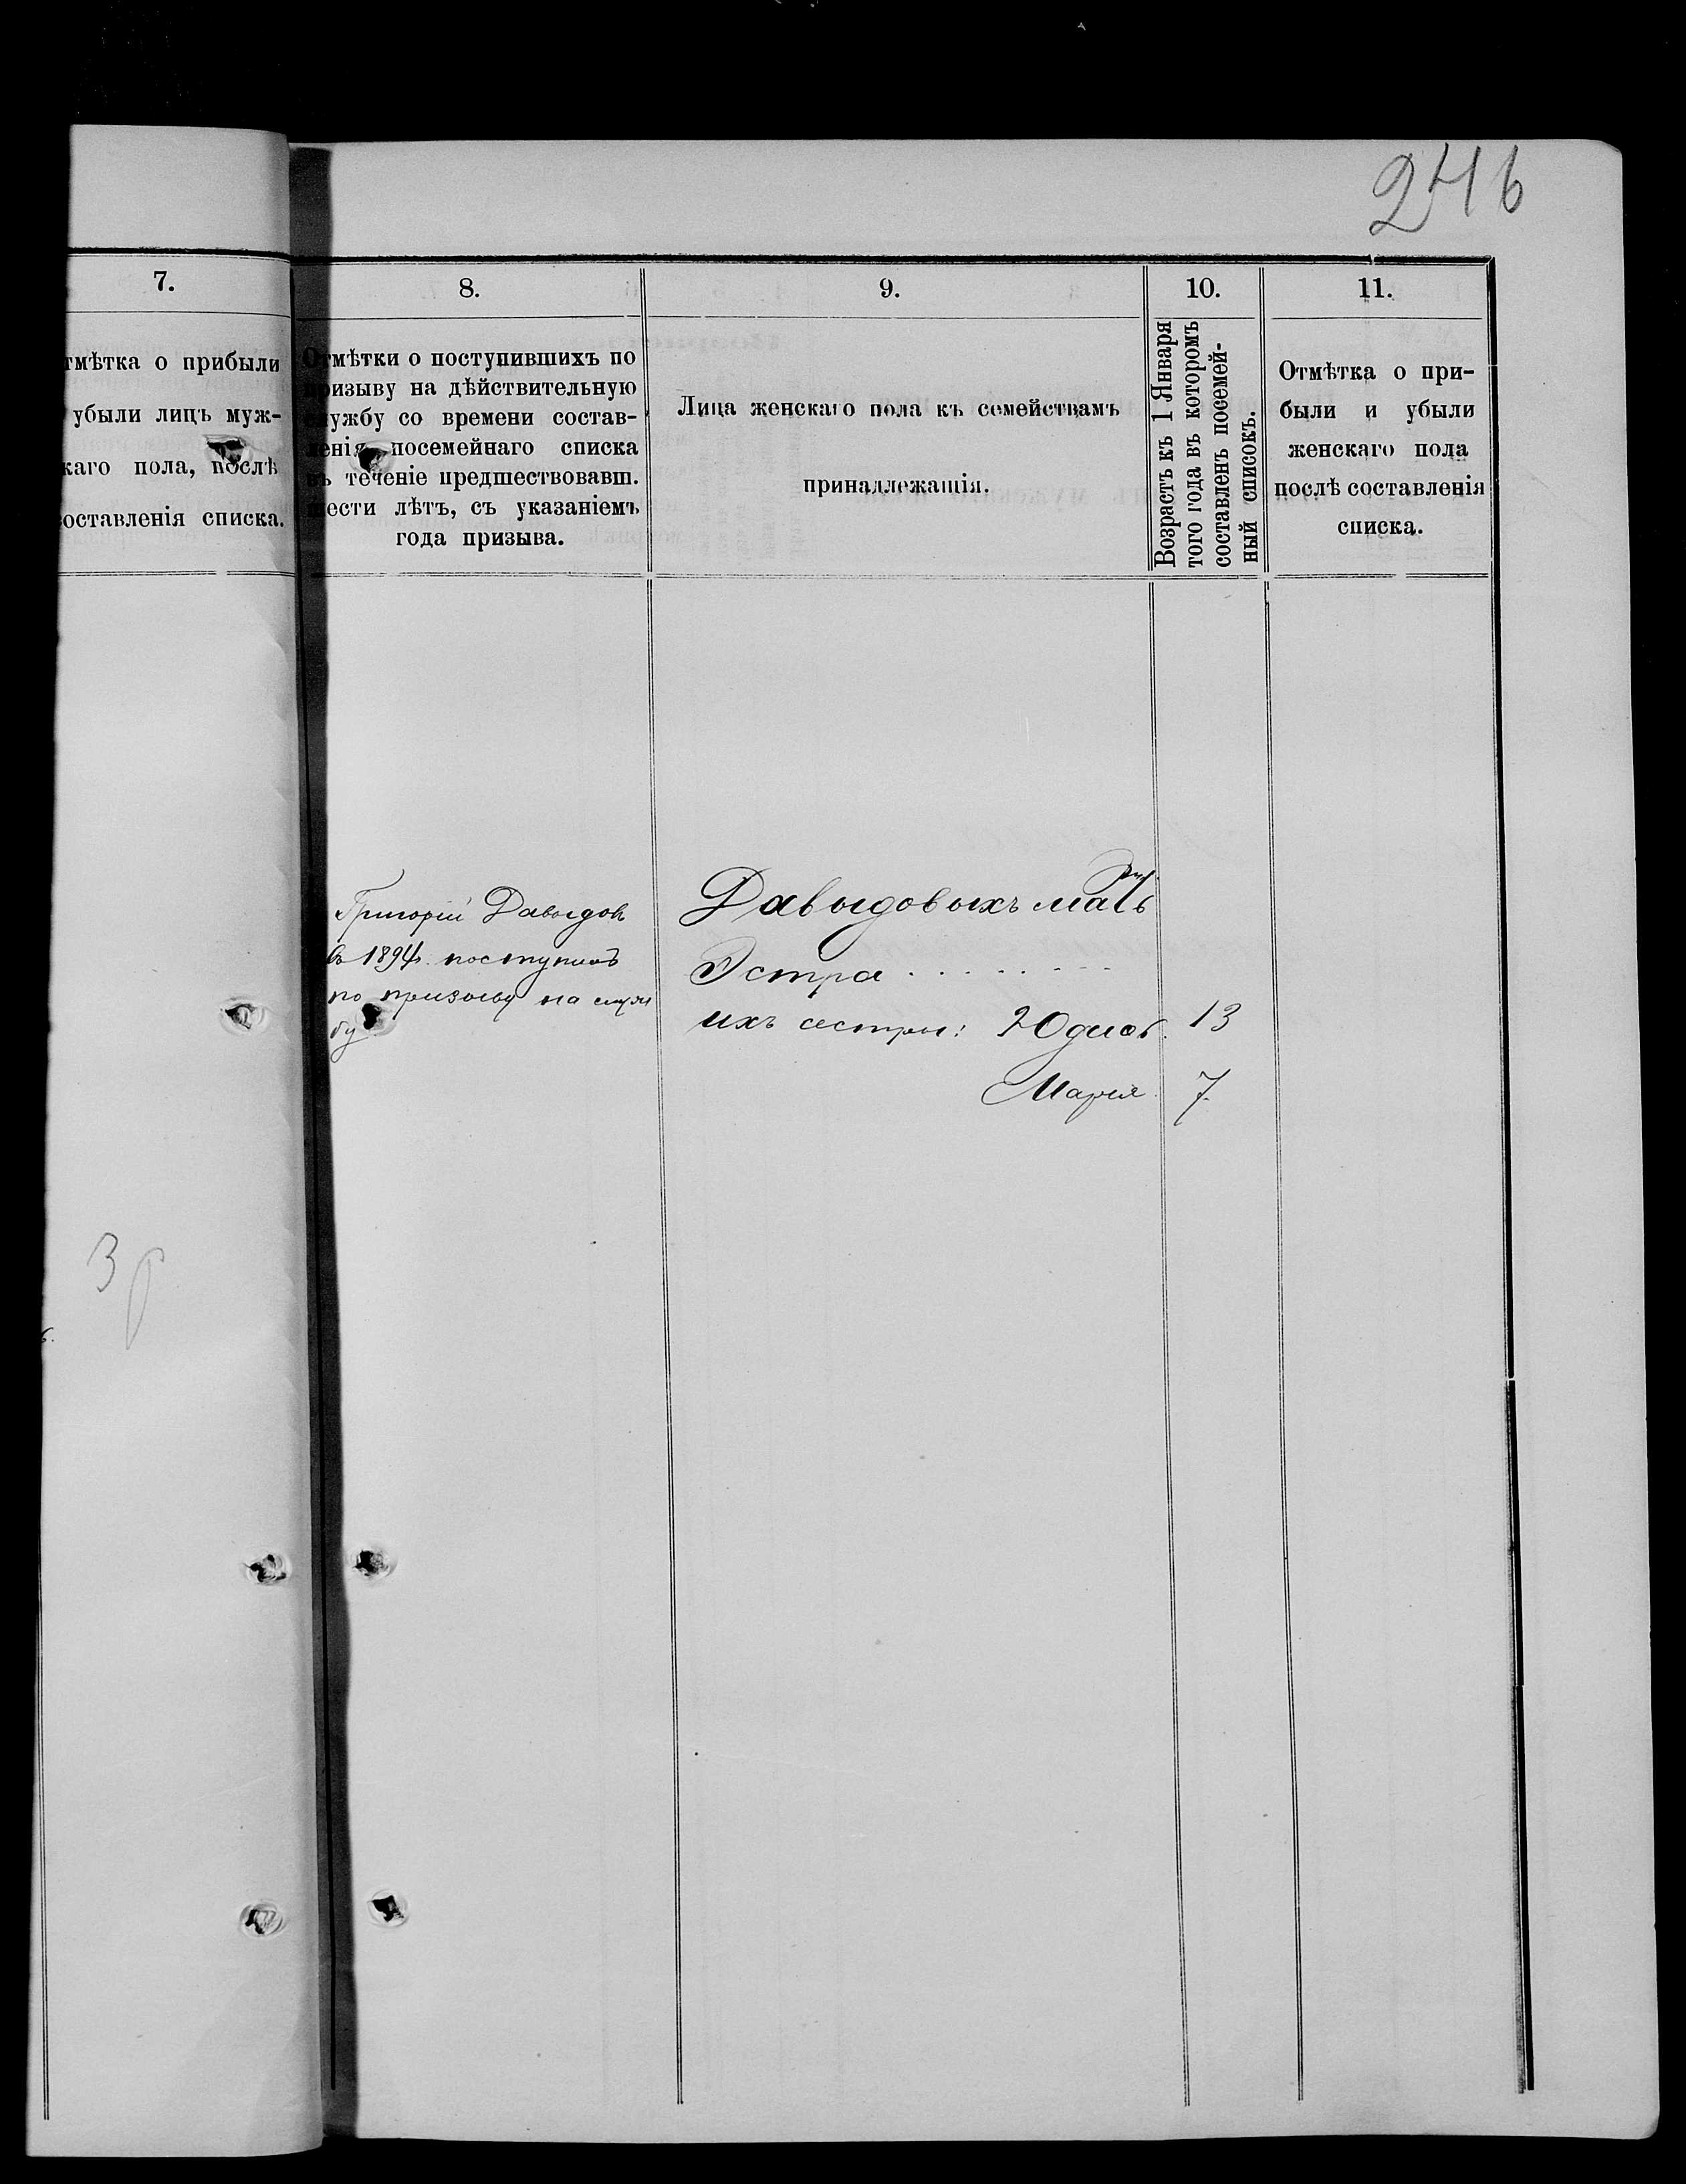 246
7.
тмѣтка о прибыли
убыли лицъ муж-
каго пола, послѣ
оставленія списка.
8.
Отмѣтки о поступившихъ по
призыву на дѣйствительную
службу со времени состав-
ленія посемейнаго списка
въ теченіе предшествовавш.
шести лѣтъ, съ указаніемъ
года призыва.
9.
Лица женскаго пола къ семействамъ
принадлежащія.
10.
Возрастъ къ 1 Января
того года въ которомъ
составленъ посемей-
ный списокъ.
11.
Отмѣтка о при-
были и убыли
женскаго пола
послѣ составленія
списка.
Григорій Давыдов
въ 1894г. поступилъ
по призыву на служ
бу
Давыдовыхъ мать
Эстра . . . . . . . .
ихъ сестры: Юдиѳ. 13
Марія 7.
3р